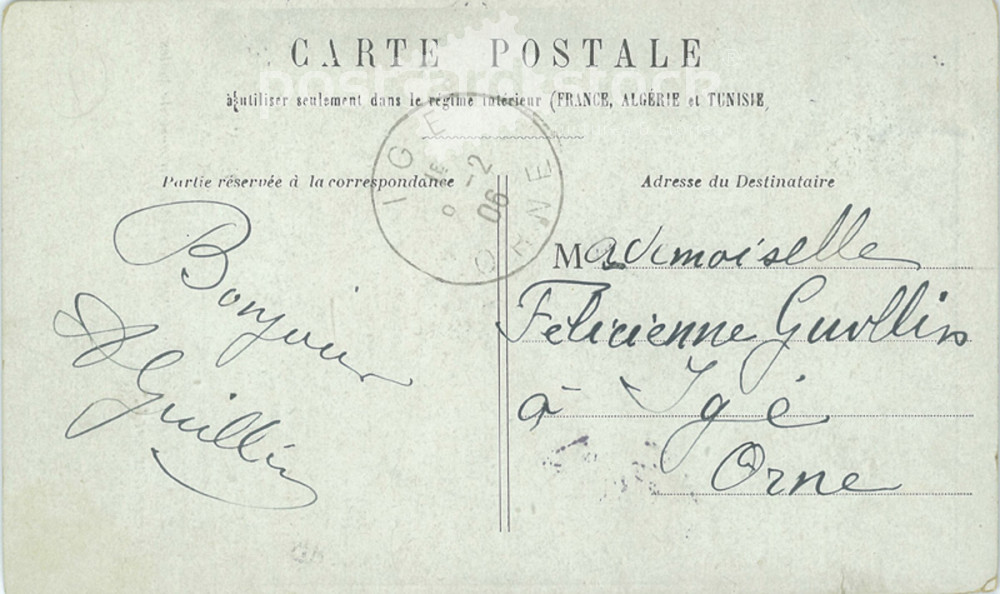 CARTE POSTALE
à utiliser seulement dans le régime intérieur (FRANCE, ALGÉRIE et TUNISIE)
Partie réservée à la correspondance
Adresse du Destinataire
IGÉ
2
06
ORNE
Bonjour
Guillin
Mademoiselle
Félicienne
à Igé
Orne